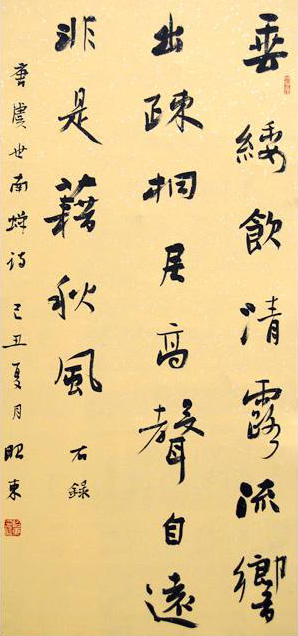 垂緌飲清露流響
出疎桐居高聲自遠
非是藉秋風 右錄
唐虞世南蝉诗 己丑夏月 昭東